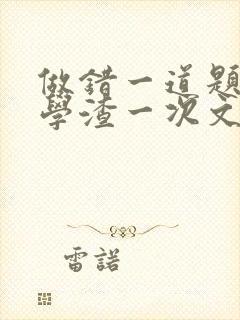 做錯一道題
學渣一次文
雷諾